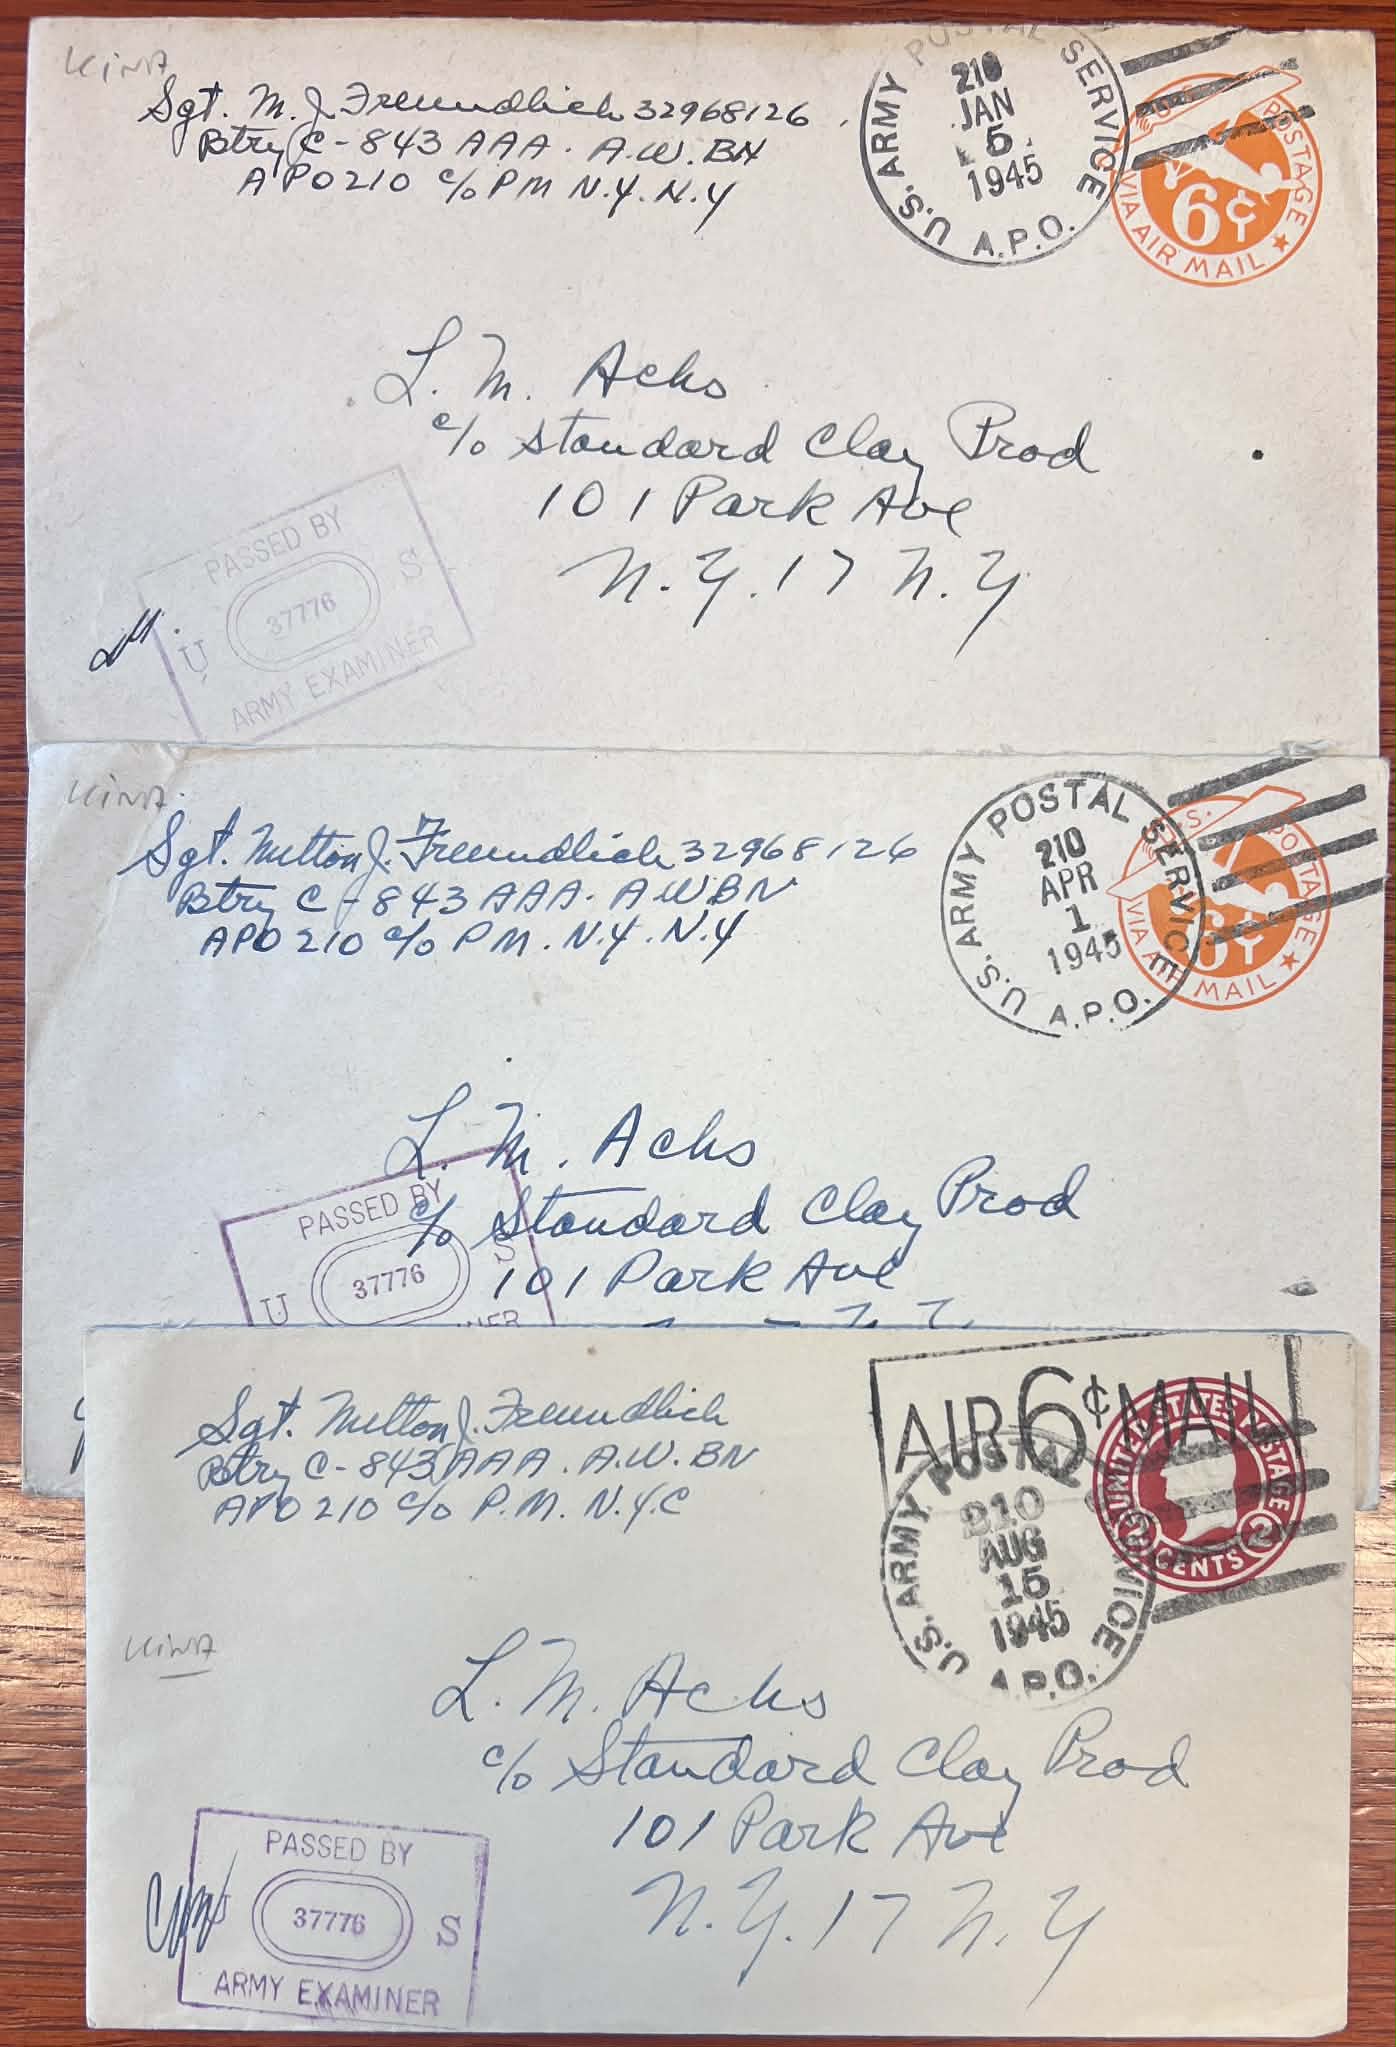 KINA
Sgt. M. J. Freundlich 32968126
Btry C - 843 AAA. A.W. BN
APO 210 c/o PM N.Y. N.Y
U.S. ARMY POSTAL SERVICE
210
JAN
5
1945
A.P.O.
POSTAGE
6¢
VIA AIR MAIL
L. M. Achs
c/o Standard Clay Prod
101 Park Ave
N.Y. 17 N.Y
PASSED BY
U 37776 S
ARMY EXAMINER
KINA
Sgt. Milton J. Freundlich 32968126
Btry C - 843 AAA. A W BN
APO 210 c/o PM. N.Y. N.Y
U.S. ARMY POSTAL SERVICE
210
APR
1
1945
A.P.O.
U.S. POSTAGE
6¢
VIA AIR MAIL
L. M. Achs
c/o Standard Clay Prod
101 Park Ave
PASSED BY
U 37776 S
Sgt. Milton J. Freundlich
Btry C - 843 AAA. A.W. BN
APO 210 c/o P.M. N.Y.C
AIR 6¢ MAIL
U.S. ARMY POSTAL SERVICE
210
AUG
15
1945
A.P.O.
UNITED STATES POSTAGE
2 CENTS 2
KINA
L. M. Achs
c/o Standard Clay Prod
101 Park Ave
N.Y. 17 N.Y
PASSED BY
U 37776 S
ARMY EXAMINER